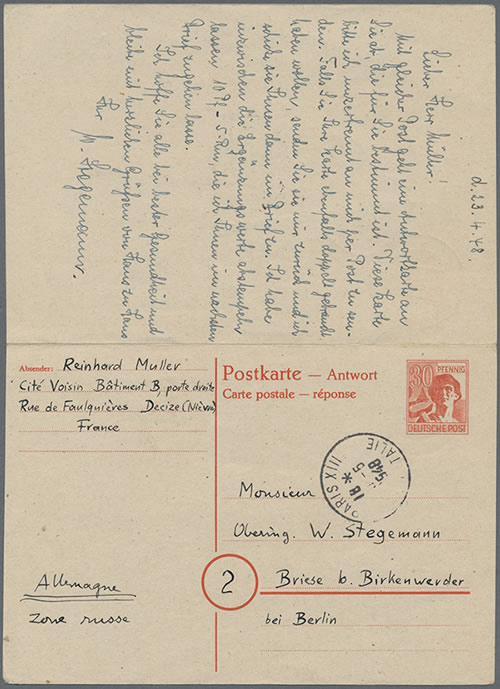 d. 23.4.48.
Lieber Herr Müller!
Mit gleicher Post geht eine Antwortkarte an
Sie ab, die für Sie bestimmt ist. Diese Karte
bitte ich unzertrennt an mich per Post zu sen-
den. Falls Sie Ihre Karte ebenfalls doppelt gebraucht
haben wollen, senden Sie sie mir zurück und ich
schicke sie Ihnen dann im Brief zu. Ich habe
inzwischen die Ergänzungswerte abstempeln
lassen, 10 Pf – 5 Rm, die ich Ihnen im nächsten
Brief zugehen lasse.
Ich hoffe Sie alle bei bester Gesundheit und
bleibe mit herzlichen Grüßen von Haus zu Haus
Ihr
W. Stegemann.
Absender: Reinhard Muller
Cité Voisin Bâtiment B, porte droite
Rue de Faulquières Decize (Nièvre)
France
Postkarte — Antwort
Carte postale — réponse
30 PFENNIG
DEUTSCHE POST
PARIS XIII
18 *
5-
948
ITALIE
Monsieur
Obering. W. Stegemann
2
Briese b. Birkenwerder
bei Berlin
Allemagne
Zone russe